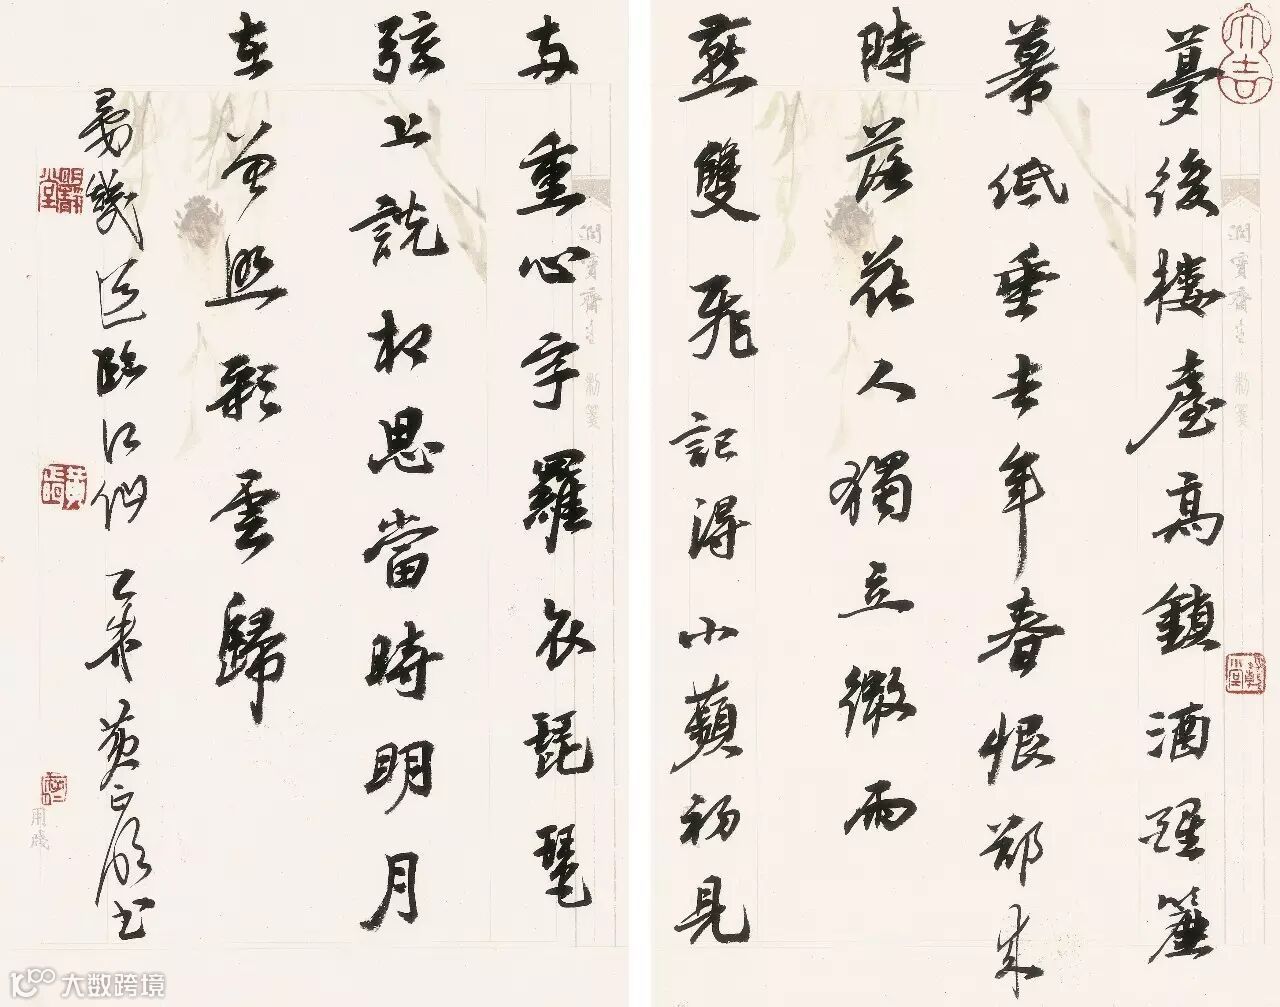 大吉
夢後樓臺高鎖酒醒簾
幕低垂去年春恨却來
時落花人獨立微雨
燕雙飛記得小蘋初見
兩重心字羅衣琵琶
弦上說相思當時明月
在曾照彩雲歸
晏幾道臨江仙 乙未 黃正書
用牋
大数跨境